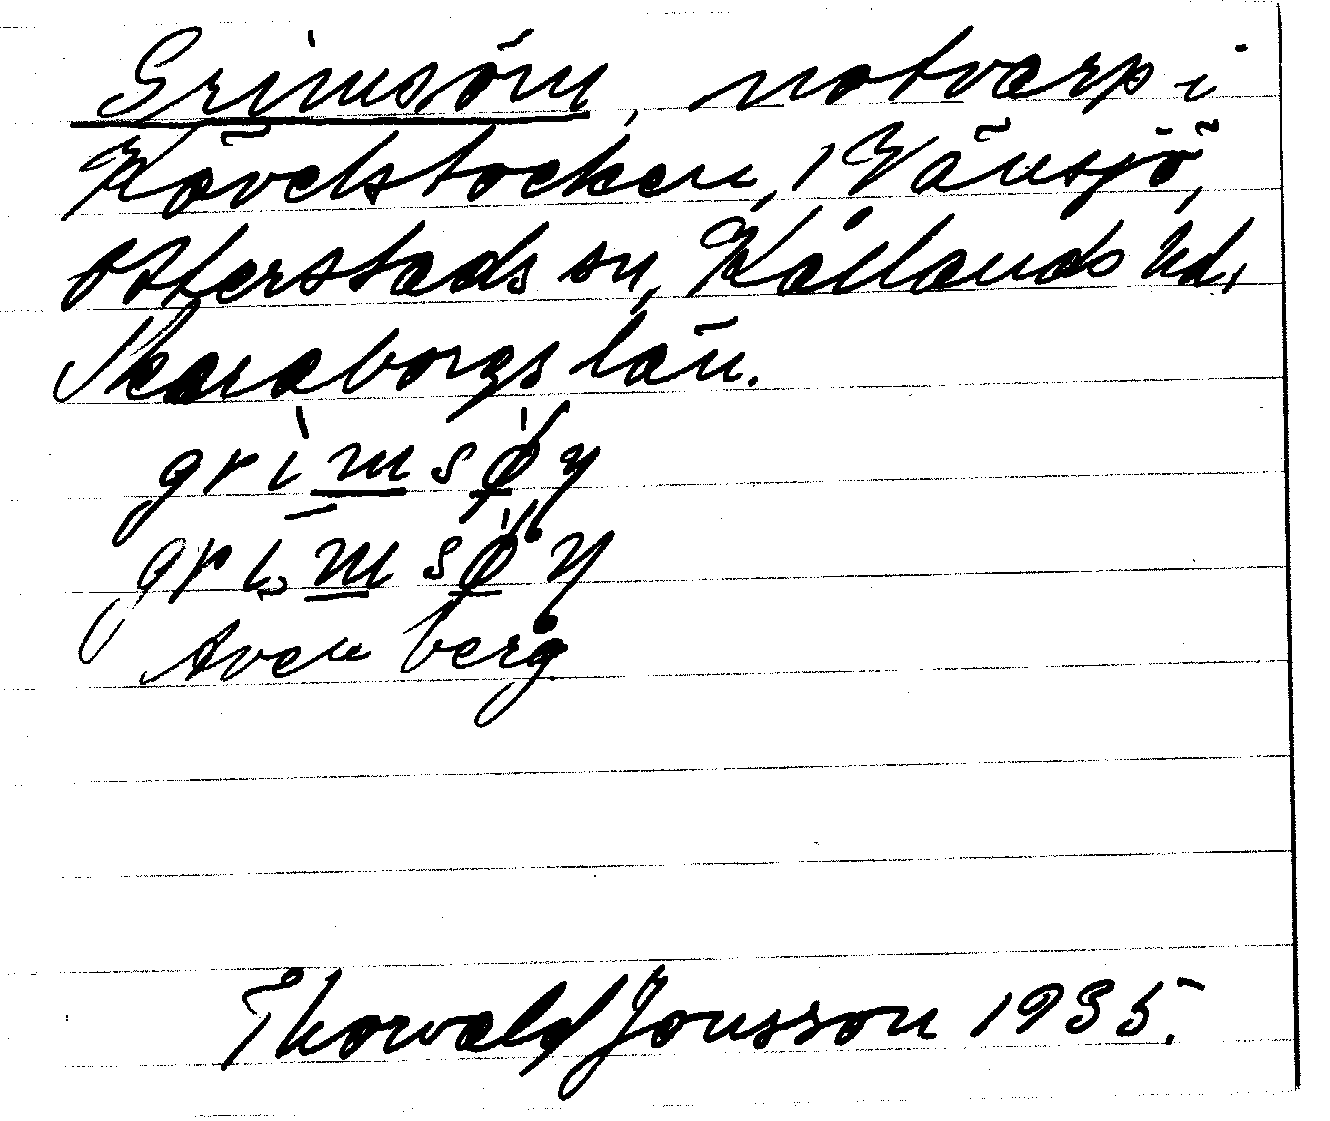 Grimsöm, notvarp i
Kävelstocken, i Vänsjö,
Otterstads sn, Kållands hd,
Skaraborgs län.
Aven berg
Thorvald Jonsson 1935.